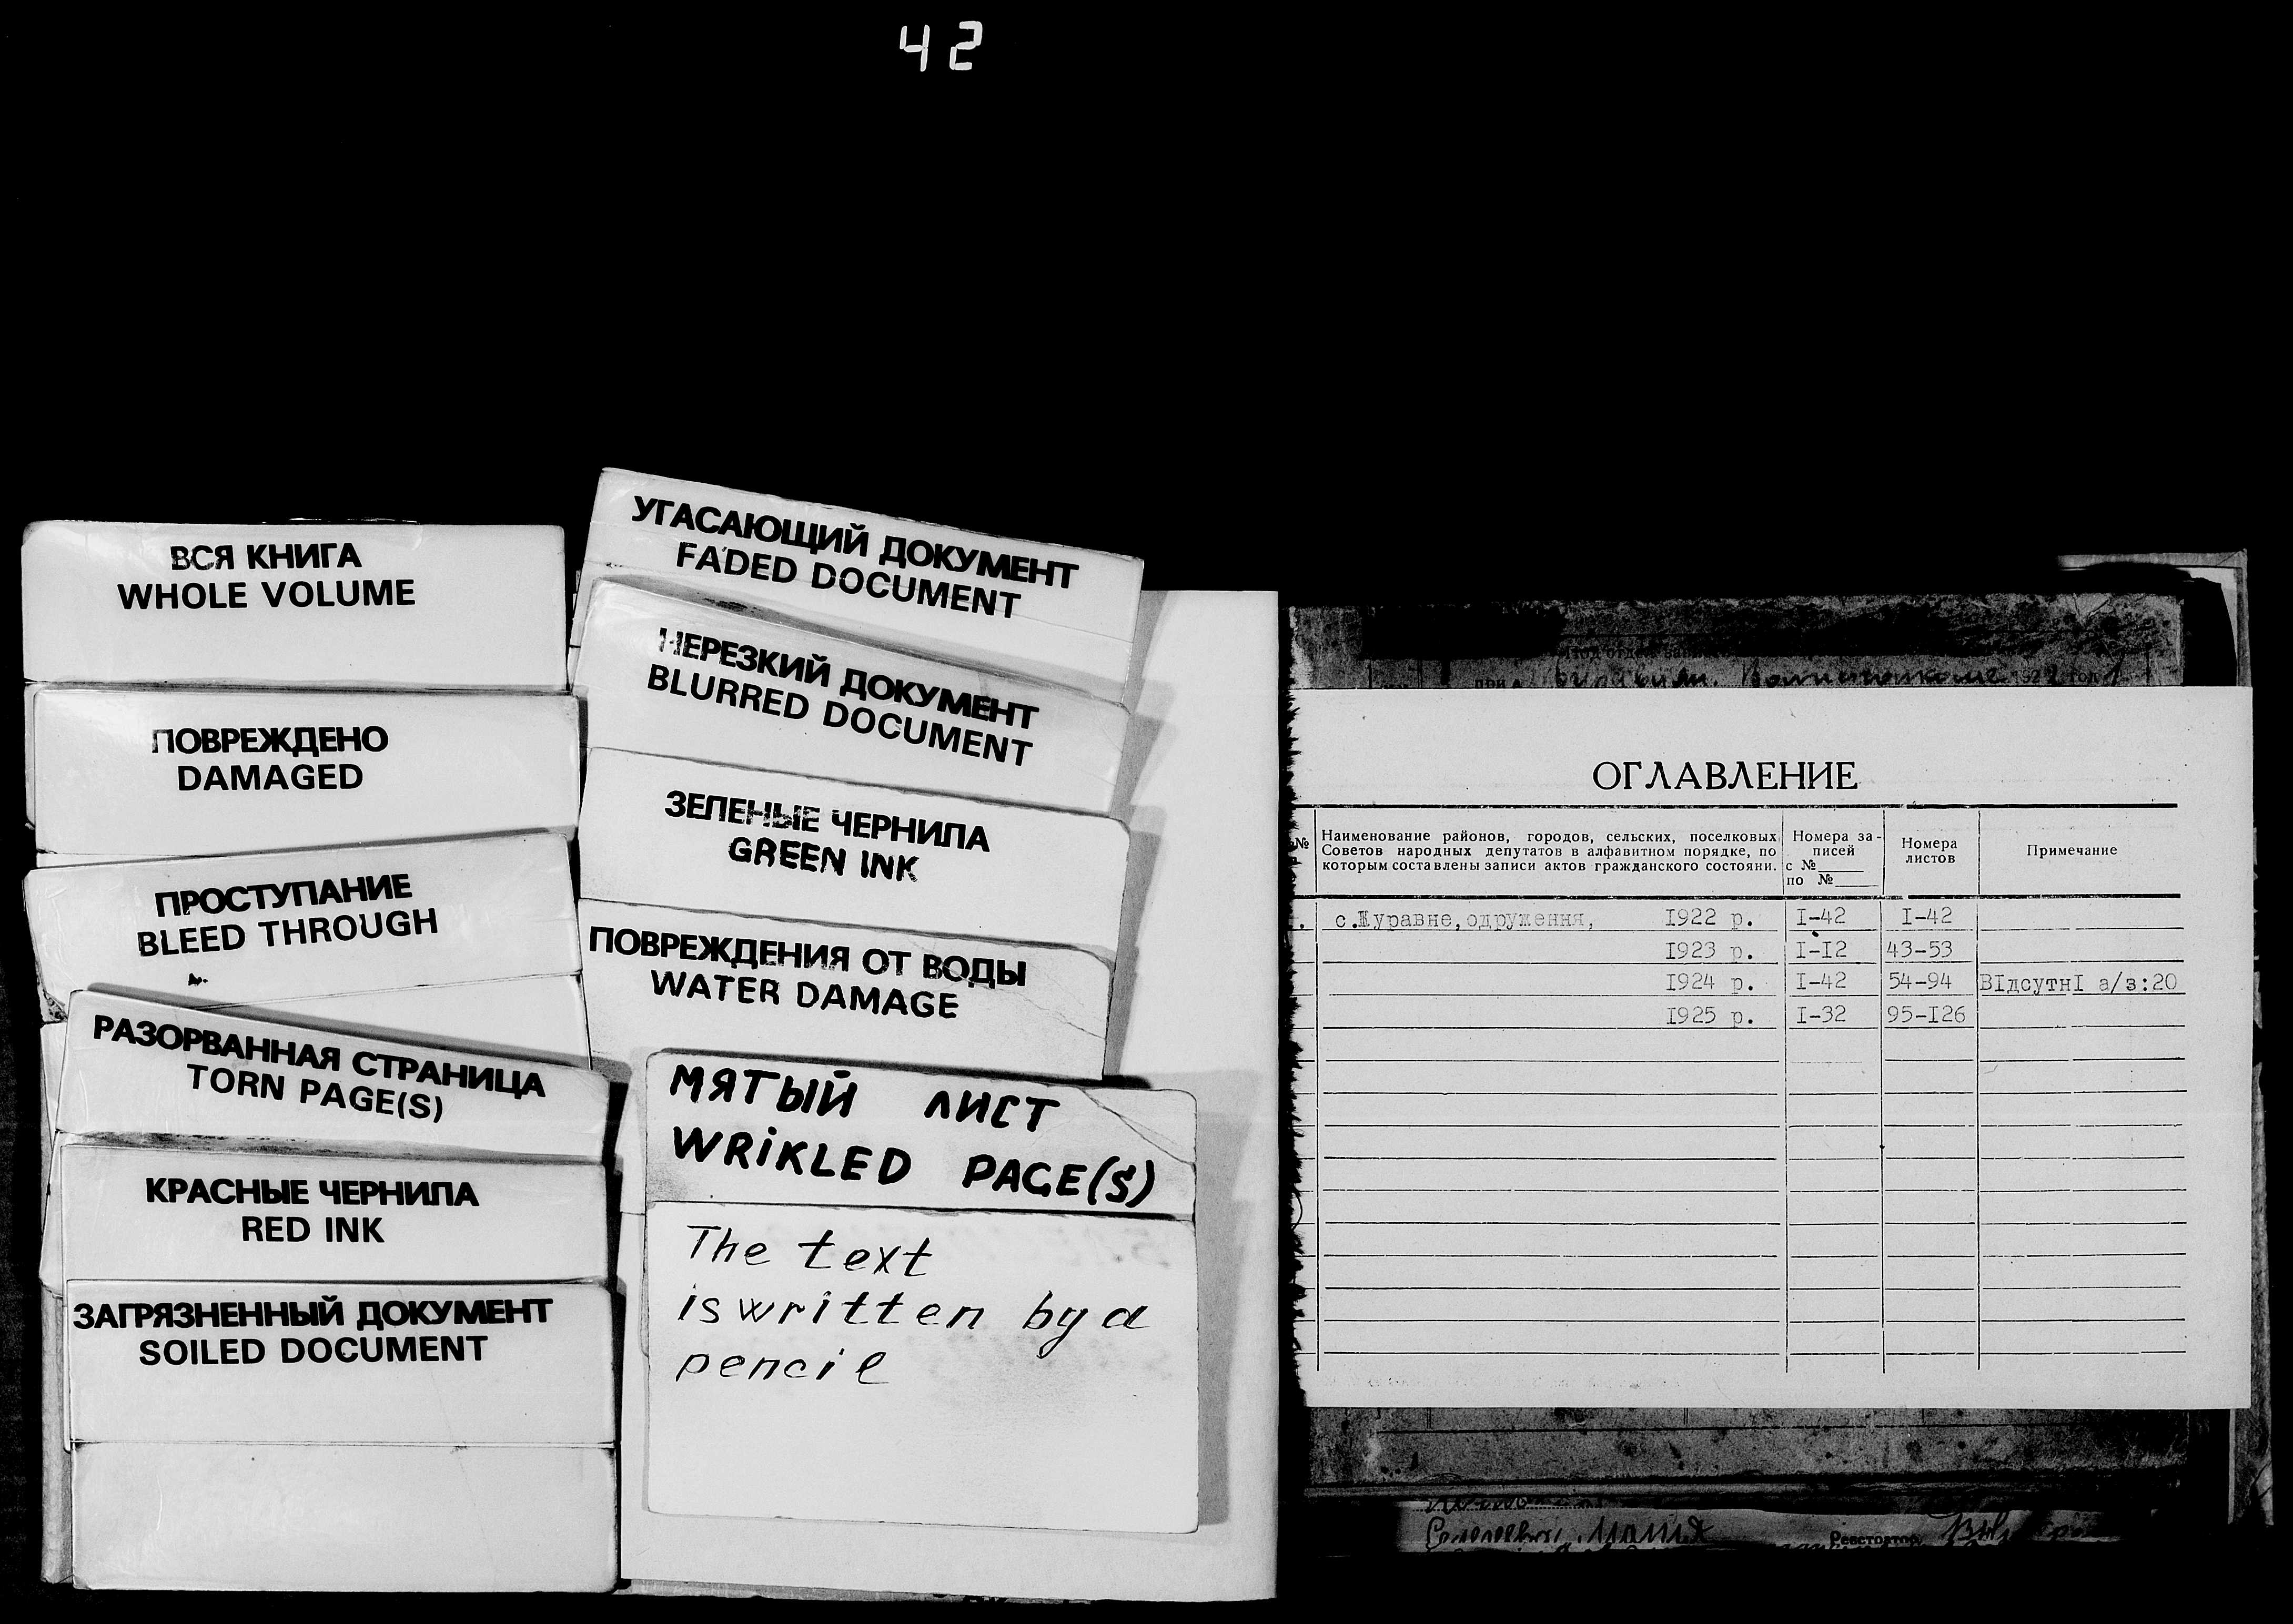 42
ВСЯ КНИГА
WHOLE VOLUME
ПОВРЕЖДЕНО
DAMAGED
ПРОСТУПАНИЕ
BLEED THROUGH
РАЗОРВАННАЯ СТРАНИЦА
TORN PAGE(S)
КРАСНЫЕ ЧЕРНИЛА
RED INK
ЗАГРЯЗНЕННЫЙ ДОКУМЕНТ
SOILED DOCUMENT
УГАСАЮЩИЙ ДОКУМЕНТ
FADED DOCUMENT
НЕРЕЗКИЙ ДОКУМЕНТ
BLURRED DOCUMENT
ЗЕЛЕНЫЕ ЧЕРНИЛА
GREEN INK
ПОВРЕЖДЕНИЯ ОТ ВОДЫ
WATER DAMAGE
МЯТЫЙ ЛИСТ
WRIKLED PAGE(S)
The text
is written by a
pencil
ОГЛАВЛЕНИЕ
№
Наименование районов, городов, сельских, поселковых
Советов народных депутатов в алфавитном порядке, по
которым составлены записи актов гражданского состояни.
Номера за-
писей
с №
по №
Номера
листов
Примечание
с.Журавне, одруження, 1922 р. I-42 I-42
1923 р. I-I2 43-53
1924 р. I-42 54-94 ВIдсутнI а/з:20
1925 р. I-32 95-I26